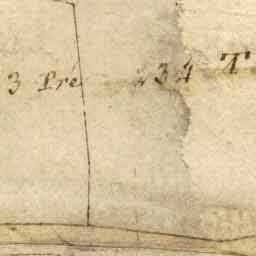 3 Pré 234 T